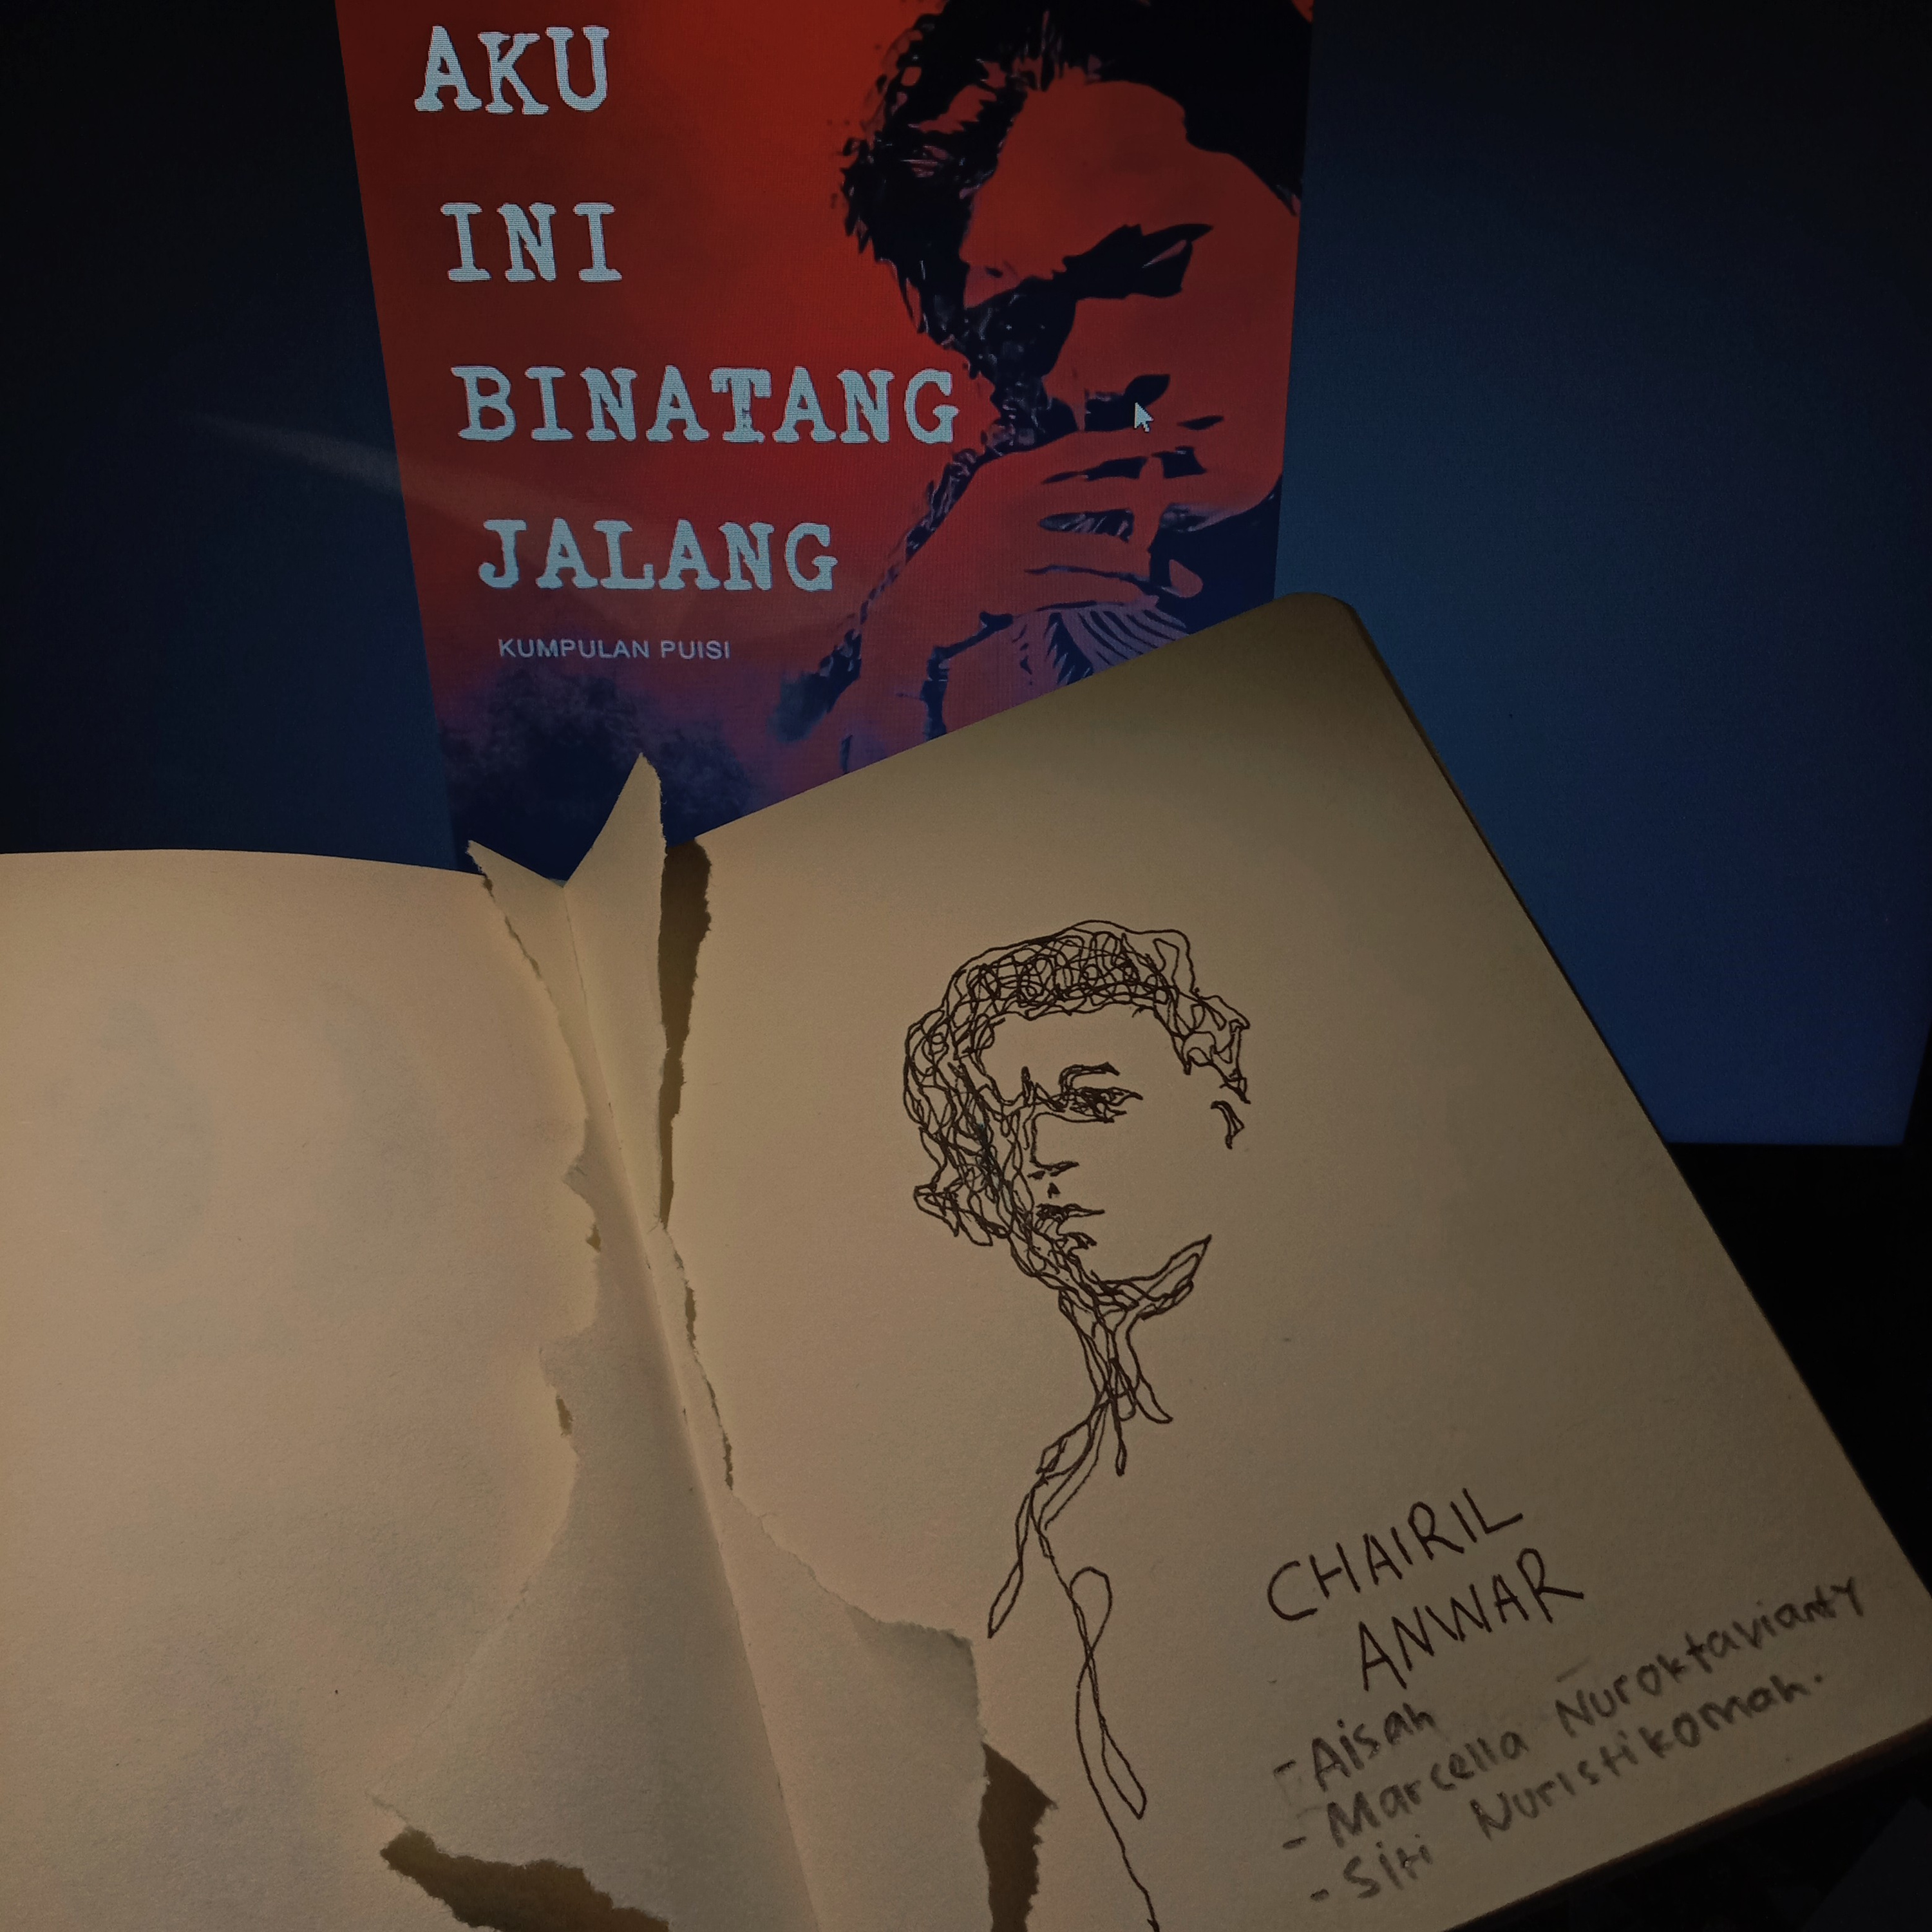 AKU
INI
BINATANG
JALANG
KUMPULAN PUISI
CHAIRIL
ANWAR
- Aisah
- Marcella Nuroktavianty
- Siti Nuristikomah.